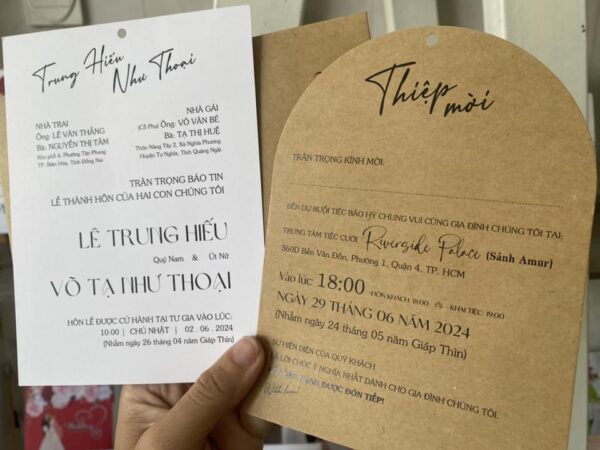 Trung Hiếu
Như Thoại
NHÀ TRAI
Ông: LÊ VĂN THẮNG
Bà: NGUYỄN THỊ TÂM
Khu phố 4, Phường Tân Phong
TP. Biên Hòa, Tỉnh Đồng Nai
NHÀ GÁI
(Cố Phụ) Ông: VÕ VĂN BÉ
Bà: TẠ THỊ HUỆ
Thôn Năng Tây 2, Xã Nghĩa Phương
Huyện Tư Nghĩa, Tỉnh Quảng Ngãi
TRÂN TRỌNG BÁO TIN
LỄ THÀNH HÔN CỦA HAI CON CHÚNG TÔI
LÊ TRUNG HIẾU
Quý Nam & Út Nữ
VÕ TẠ NHƯ THOẠI
HÔN LỄ ĐƯỢC CỬ HÀNH TẠI TƯ GIA VÀO LÚC:
10:00 | CHỦ NHẬT | 02 . 06 . 2024
(Nhằm ngày 26 tháng 04 năm Giáp Thìn)
Thiệp
mời
TRÂN TRỌNG KÍNH MỜI:
ĐẾN DỰ BUỔI TIỆC BÁO HỶ CHUNG VUI CÙNG GIA ĐÌNH CHÚNG TÔI TẠI:
TRUNG TÂM TIỆC CƯỚI Riverside Palace (Sảnh Amur)
360D Bến Vân Đồn, Phường 1, Quận 4, TP. HCM
Vào lúc 18:00 -ĐÓN KHÁCH: 18:00 - KHAI TIỆC: 19:00
NGÀY 29 THÁNG 06 NĂM 2024
(Nhằm ngày 24 tháng 05 năm Giáp Thìn)
SỰ HIỆN DIỆN CỦA QUÝ KHÁCH
LÀ LỜI CHÚC Ý NGHĨA NHẤT DÀNH CHO GIA ĐÌNH CHÚNG TÔI.
ĐƯỢC ĐÓN TIẾP!
With love!